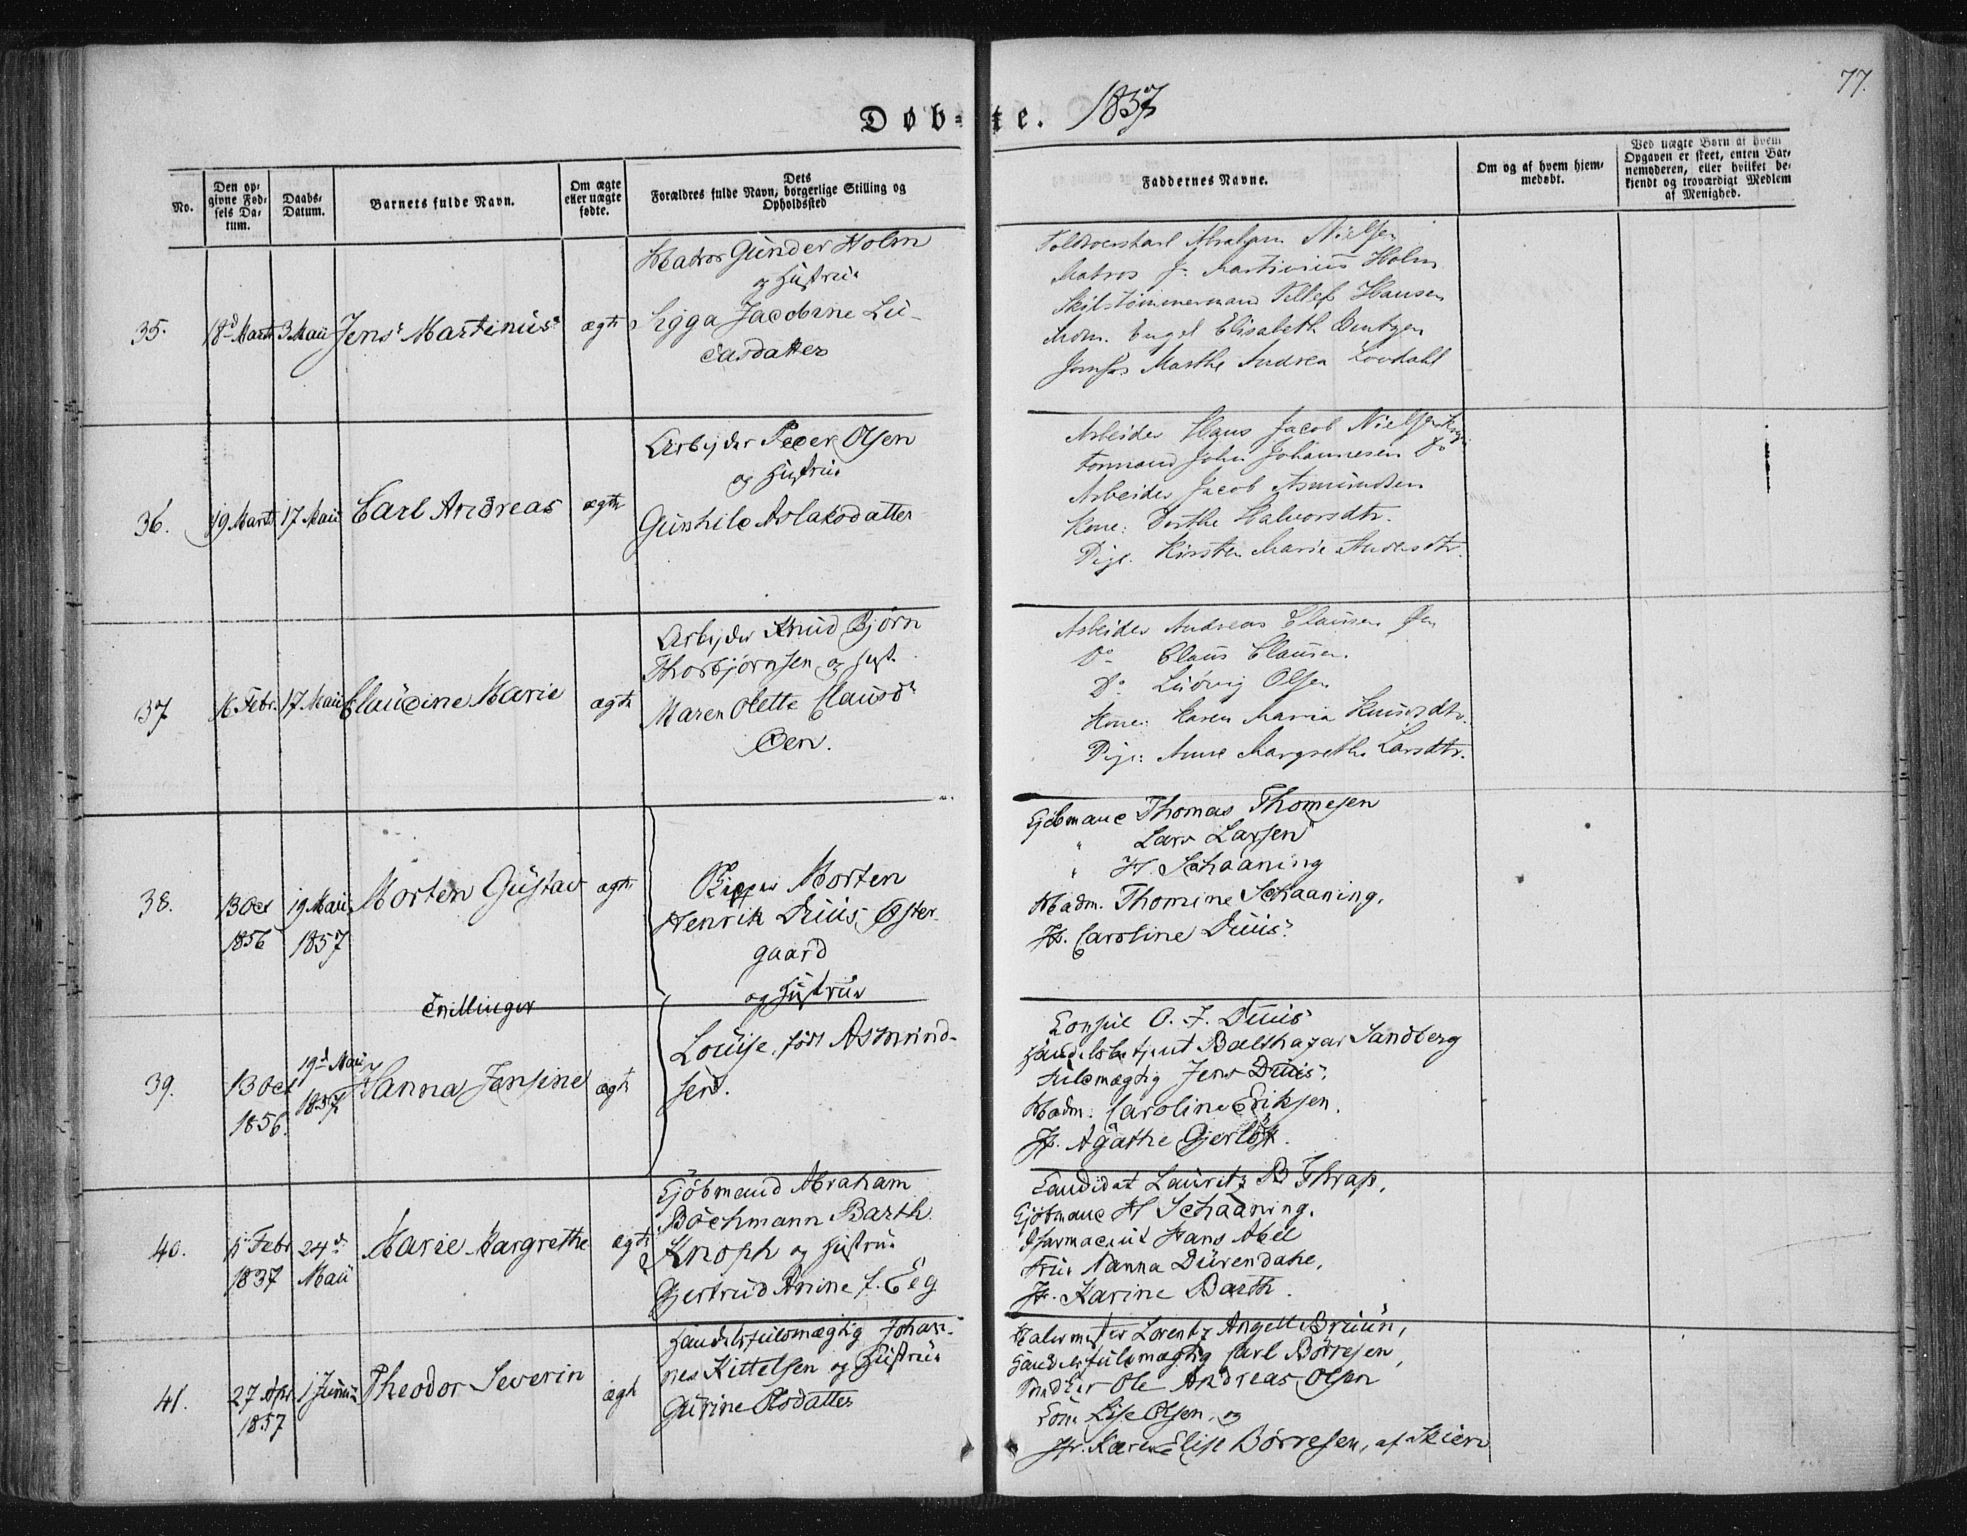 77.
Døb-te. 1857
No.
Den op-
givne Fød-
sels Da-
tum.
Daabs-
Datum.
Barnets fulde Navn.
Om ægte
eller uægte
fødte.
Dets
Forældres fulde Navn, borgerlige Stilling og
Opholdssted
Faddernes Navne.
Om og af hvem hjem-
medøbt.
Ved uægte Børn af hvem
Opgaven er skeet, enten Bar-
nemoderen, eller hvilket be-
kjendt og troværdigt Medlem
af Menighed.
35.
18d Marts
3 Maii
Jens Martinus
ægte
Matros Gunder Holm
og Hustrue
Sigga Jacobine Lu-
casdatter
Abraham Nielsen
Matros J. Martinius Holm
Tømmermand Tellef Hansen
Mdm. Engel Elisabeth Bentzen
Jomfr Marthe Andrea Lovdahl
36.
19 Marts
17 Maii
Carl Andreas
ægte
Arbejder Peder Olsen
og Hustrue
Gunhild Aslaksdatter
Arbeider Hans Jacob Nielsen
Formand John Johannesen Do
Arbeider Jacob Asmundsen
Kone: Dorthe Halvorsdtr.
Pige. Kirsten Marie Andersdtr.
37
16 Febr.
17 Maii
Claudine Marie
ægte
Arbejder Knud Bjørn
Thorbjørnsen og Hust.
Maren Olette Clausd
Øen.
Arbeider Andreas Clausen Øen
Do Claus Clausen.
Do Ludvig Olsen
Kone: Karen Maria Knudsdtr.
Pige: Anne Margrethe Larsdtr.
38.
13 Oct
1856
19 Maii
1857
Morten Gustav
ægte
Skipper Morten
Henrik Duus Øster-
gaard
og Hustrue
Kjøbmand Thomas Thomesen
" Lars Larsen
" H. Schaaning
Madm. Thomine Schaaning,
Jfr. Caroline Duus.
Tvillinger
39.
13 Oct
1856.
19d Maii
1857
Hanna Jensine
ægte
Louise, født Asmund-
sen.
Consul O. J. Duus
Handelsbetjent Balthazar Sandberg
Fuldmægtig Jens Duus,
Madm. Caroline Eriksen,
Jfr. Agathe Gjerløt.
40.
15 Febr
1837
24d
Maii
Marie Margrethe
ægte
Kjøbmand Abraham
Böchmann Barth
Knoph og Hustrue
Gertrud Anine f. Eeg
Candidat Lauritz B Thrap,
Kjøbmand H Schaaning,
Pharmaceut Hans Abel
Frue Nanna Dürendahl,
Jfr. Karine Barth.
41.
27 Apr
1857
1 Junii
Theodor Severin
ægte
Handelsfuldmægtig Johan-
nes Kittelsen og Hustrue
Gurine Olsdatter
Malermester Lorentz Angell Bruun,
Handelsfuldmægtig Carl Børresen,
Ole Andreas Olsen
Kone Lise Olsen, og
Jfr. Karen Elise Børresen, af Skien